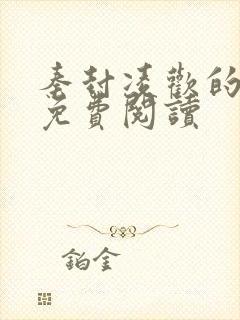 秦封凌歡的
免費閱讀
鉑金